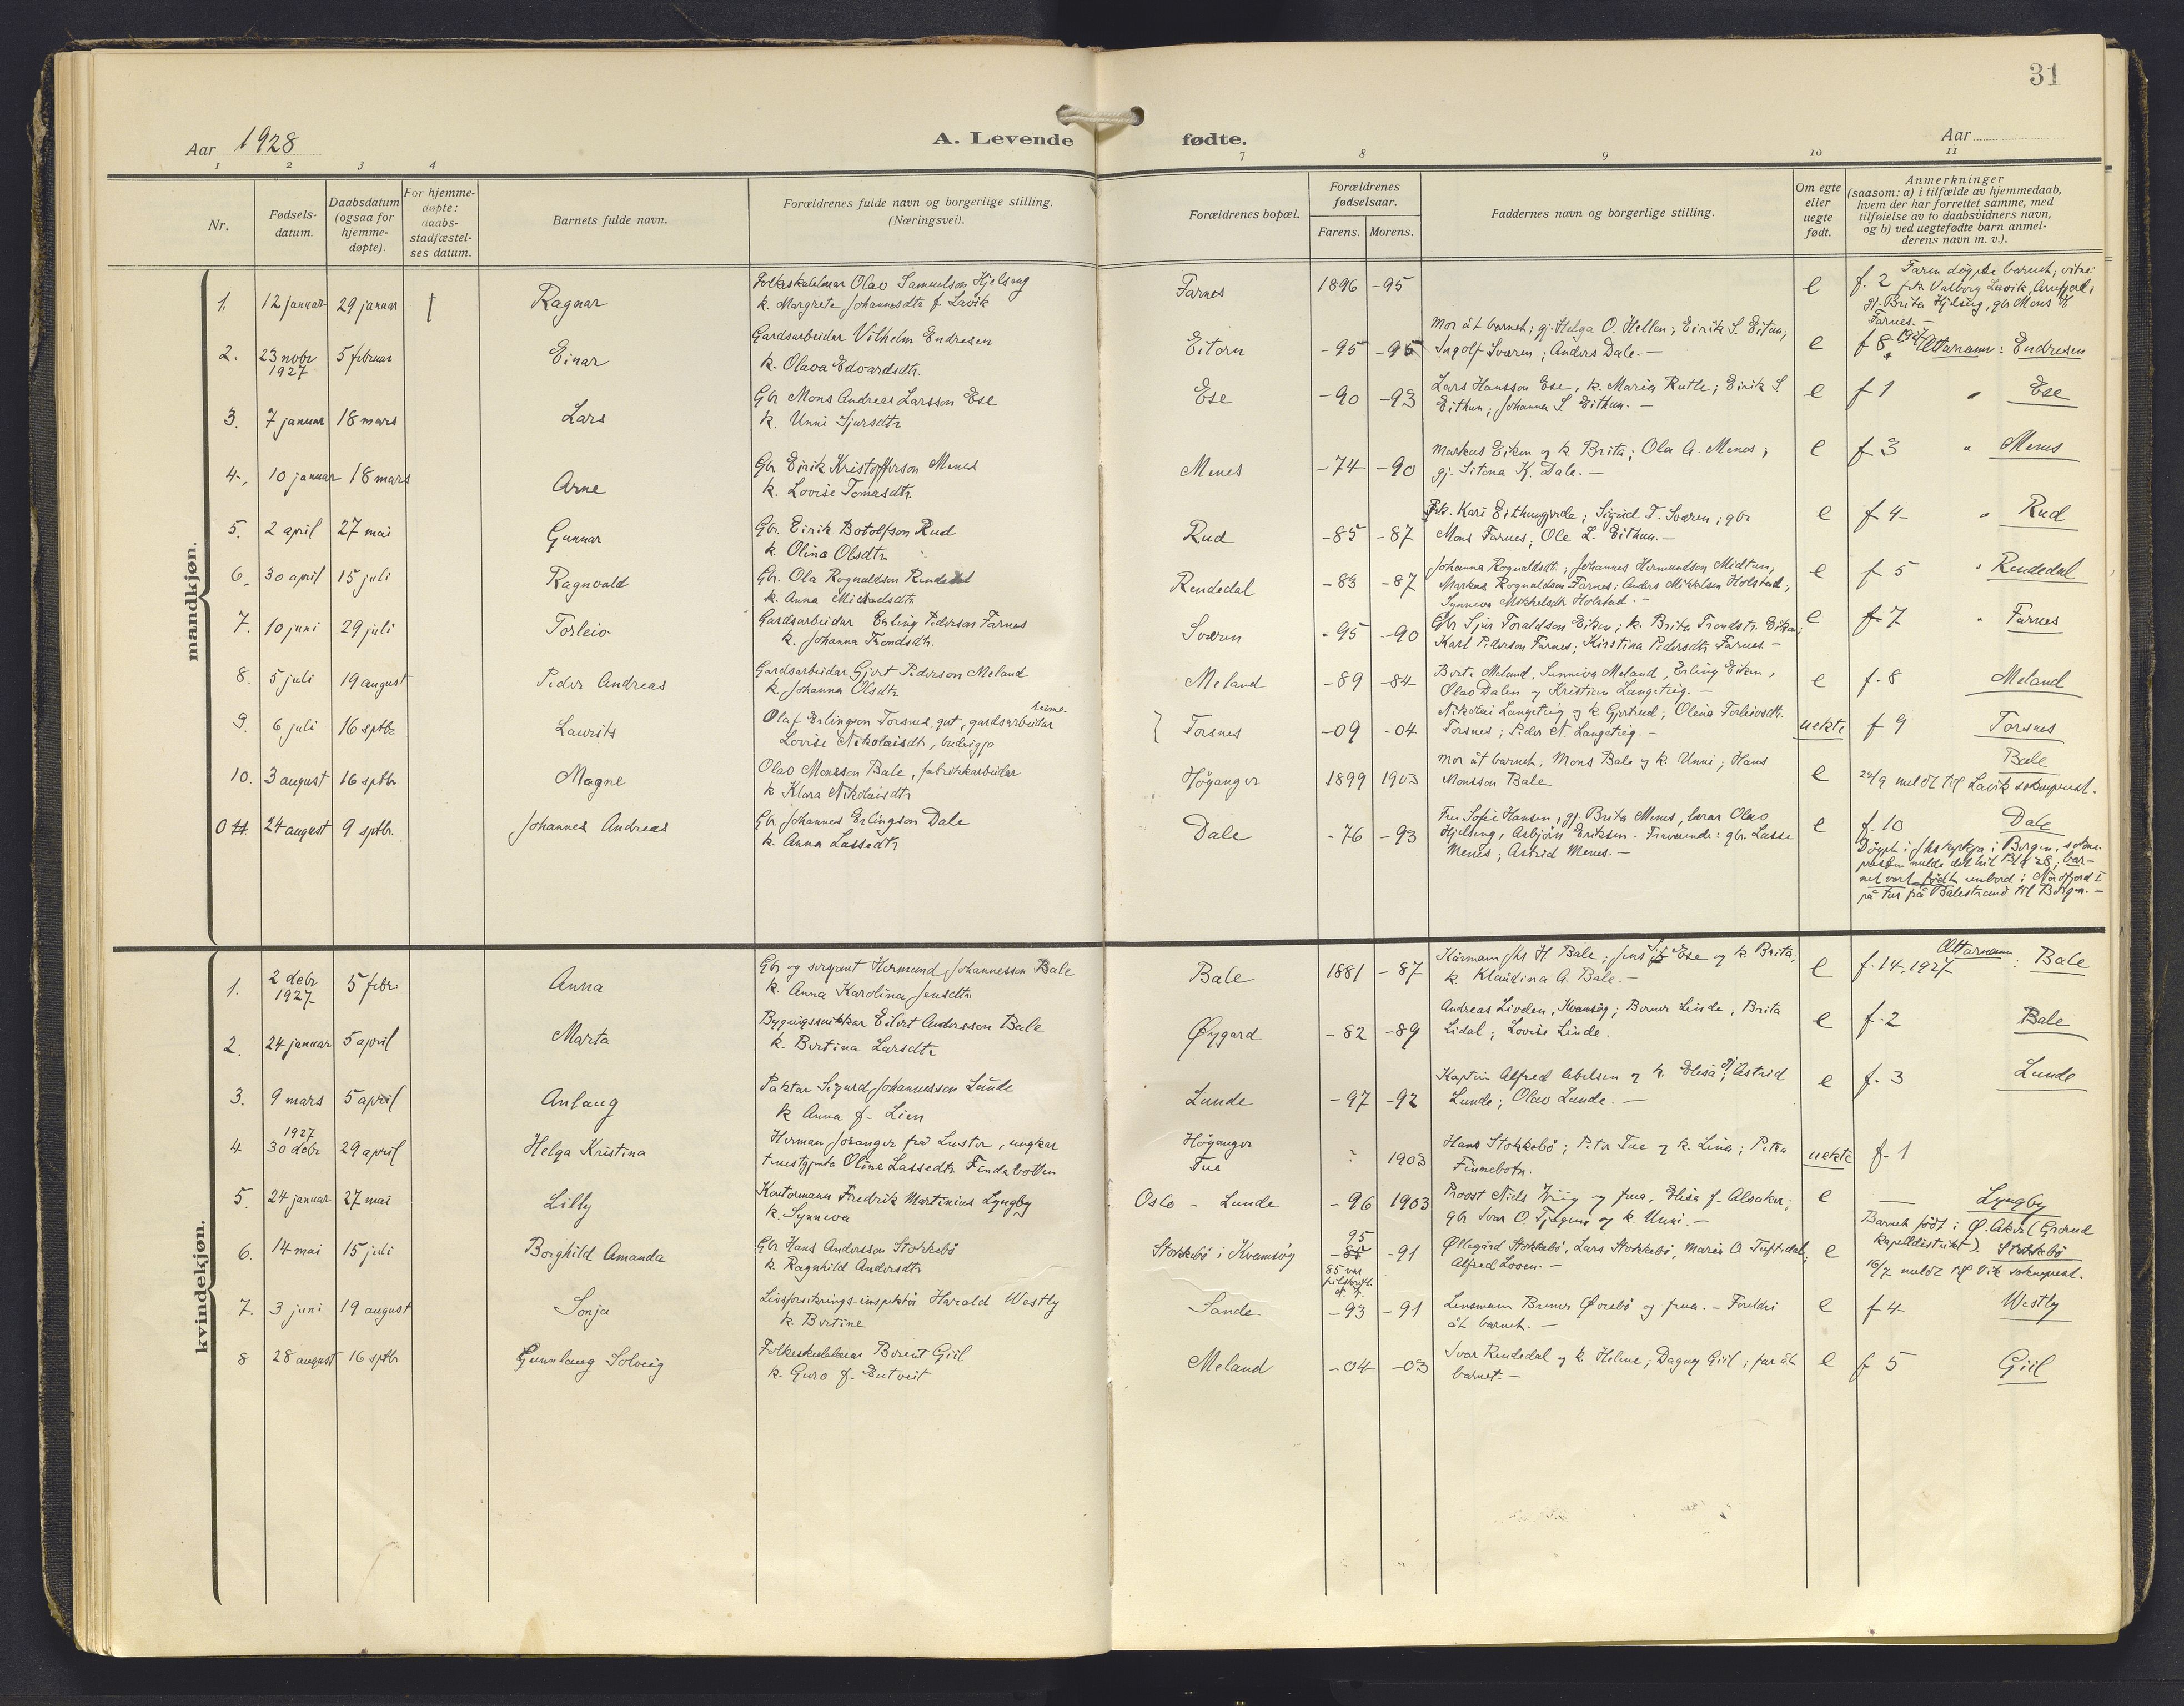 31
Aar 1928
A. Levende fødte.
Aar
1 2 3 4 7 8 9 10 11
Nr.
Fødsels-
datum.
Daabsdatum
(ogsaa for
hjemme-
døpte).
For hjemme-
døpte:
daabs-
stadfæstel-
ses datum.
Barnets fulde navn.
Forældrenes fulde navn og borgerlige stilling.
(Næringsvei).
Forældrenes bopæl.
Forældrenes
fødselsaar.
Farens. Morens.
Faddernes navn og borgerlige stilling.
Om egte
eller
uegte
født.
Anmerkninger
(saasom: a) i tilfælde av hjemmedaab,
hvem der har forrettet samme, med
tilføielse av to daabsvidners navn,
og b) ved uegtefødte barn anmel-
derens navn m. v.).
mandkjøn.
1. 12 januar 29 januar † Ragnar
Folkeskulelærar Olav Samuelson Hjelseng
k. Margrete Johannesdtr f. Lavik
Farnes 1896 -95 e f. 2
Faren døypte barnet, vitne:
frk Valborg Lavik, Arnafjord;
gj. Brita Hjelseng, gbr Mons H
Farnes.-
2. 23 novbr 1927 5 februar Einar
Gardsarbeidar Vilhelm Endresen
k. Olava Edvardsdtr.
Eitorn -95 -95
Mor åt barnet; gj. Helga O. Hellen; Eirik S. Eitun;
Ingolf Sværen; Anders Dale.-
e f 8 1927 Ættarnamn: Endresen
3. 7 januar 18 mars Lars
Gbr Mons Andreas Larsson Ese
k. Unni Sjursdtr
Ese -90 -93
Lars Hansson Ese, k. Maria Rutle; Eirik S
Eithun; Johanna S Eithun.-
e f 1 " Ese
4. 10 januar 18 mars Arne
Gbr Eirik Kristofferson Menes
k. Lovise Tomasdtr
Menes -74 -90
Markus Eiken og k. Brita; Ola A. Menes;
gj. Sitona K. Dale.-
e f 3 " Menes
5. 2 april 27 mai Gunnar
Gbr. Eirik Botolfson Rud
k. Olina Olsdtr
Rud -85 -87
Frk. Kari Eithungjerde; Sigrid T. Sværen; gbr
Mons Farnes; Ole L. Eithun.-
e f 4 " Rud
6. 30 april 15 juli Ragnvald
Gbr. Ola Rognaldson Rendedal
k. Anna Mickelsdtr
Rendedal -83 -87
Johanna Rognaldsdtr.; Johannes Hermundson Midtun;
Markus Rognaldson Farnes; Anders Mikkelsen Holstad;
Synneva Mikkelsdtr Holstad.-
e f 5 " Rendedal
7. 10 juni 29 juli Torleiv
Gardsarbeidar Erling Pederson Farnes
k. Johanna Trondsdtr.
Sværen -95 -90
Gbr Sjur Toraldson Eiken; k. Brita Trondsdtr. Eiken;
Karl Pederson Farnes; Kirstina Pedersdtr Farnes.-
e f 7 " Farnes
8. 5 juli 19 august Peder Andreas
Gardsarbeidar Gjert Pederson Meland
k. Johanna Olsdtr
Meland -89 -84
Berta Meland, Sunniva Meland, Erling Eiken,
Olav Dalen og Kristian Langeteig.-
e f. 8 Meland
9. 6 juli 16 septbr Laurits
Olaf Erlingson Torsnes, gut, gardsarbeidar heime.
Lovise Nikolaisdtr, budeigja
Torsnes -09 -04
Nikolai Langeteig og k Gjertrud; Olina Torleivsdtr.
Torsnes; Peder N. Langeteig.-
uekte f 9 Torsnes
10. 3 august 16 septbr Magne
Olav Monsson Bale, fabrikkarbeidar
k Klara Nikolaisdtr
Høyanger 1899 1903
Mor åt barnet; Mons Bale og k. Unni; Hans
Monsson Bale
e Bale
22/9 meldt til Lavik sokneprest.
0 11. 24 august 9 septbr. Johannes Andreas
Gbr Johannes Erlingson Dale
k. Anna Lassedtr
Dale -76 -93
Fru Sofie Hansen, gj. Brita Menes, lærar Olav
Hjelseng, Asbjørn Eriksen. Fraverende: gbr. Lasse
Menes; Astrid Menes.-
e f. 10 Dale
Døypt i Bergen, sokne-
presten melde det hit 28, bar-
net vart født umbord i Nordfjord I
på tur frå Balestrand til Bergen.-
kvindekjøn.
1. 2 debr 1927 5 febr. Anna
Gbr og sersjant Hermund Johannesson Bale
k. Anna Karolina Jensdtr
Bale 1881 -87
Kårmann Jhs H Bale; Jens Ese og k. Brita;
k. Klaudina A. Bale.-
e f. 14. 1927 Ættarnamn: Bale
2. 24 januar 5 april Marta
Bygningssnikkar Eilert Andersson Bale
k. Bertina Larsdtr
Øygard -82 -89
Andreas Livden, Kvamsøy; Berner Linde; Brita
Lidal; Lovise Linde.
e f. 2 Bale
3. 9 mars 5 april Anlaug
Paktar Sigurd Johannesson Lunde
k Anna f. Lien
Lunde -97 -92
Kaptein Alfred Abelsen og k. Elisa; gj. Astrid
Lunde; Olav Lunde.-
e f. 3 Lunde
4 1927 30 debr 29 april Helga Kristina
Herman Joranger frå Luster, ungkar
tenestgjenta Oline Lassedtr Findabotten
Høyanger
Tue
? 1903
Hans Stokkebø; Peter Tue og k. Lina; Petra
Finnebotn.
uekte f. 1
5. 24 januar 27 mai Lilly
Kontormann Fredrik Martinius Lyngby
k. Synneva
Oslo - Lunde -96 1903
Proost Niels og frua, Elisa f. Alsaker;
gbr Ivar O. Tjugum og k. Unni.-
e — Lyngby
Barnet født i Ø. Aker (Grorud
kapelldistrikt).
6. 14 mai 15 juli Borghild Amanda
Gbr Hans Andersson Stokkebø
k. Ragnhild Andersdtr
Stokkebø i Kvamsøy 95 -85 -91
85 var
feilskrift.
Øllegård Stokkebø, Lars Stokkebø, Maria O. Tuftedal,
Alfred Loven.-
e Stokkebø
16/7 meldt til Vik sokneprest.
7. 3 juni 19 august Sonja
Livsforsikrings-inspektør Harald Westly
k. Bertine
Sande -93 -91
Lensmann Berner Ørebø og frua.- Foreldri
åt barnet.-
e f 4 Westly
8 28 august 16 septbr Gunnlaug Solveig
Folkeskulelærar Berent Giil
k. Guro f. Entveit
Meland -04 -03
Ivar Rendedal og k. Helene; Dagny Giil; far åt
barnet.-
e f 5 Giil